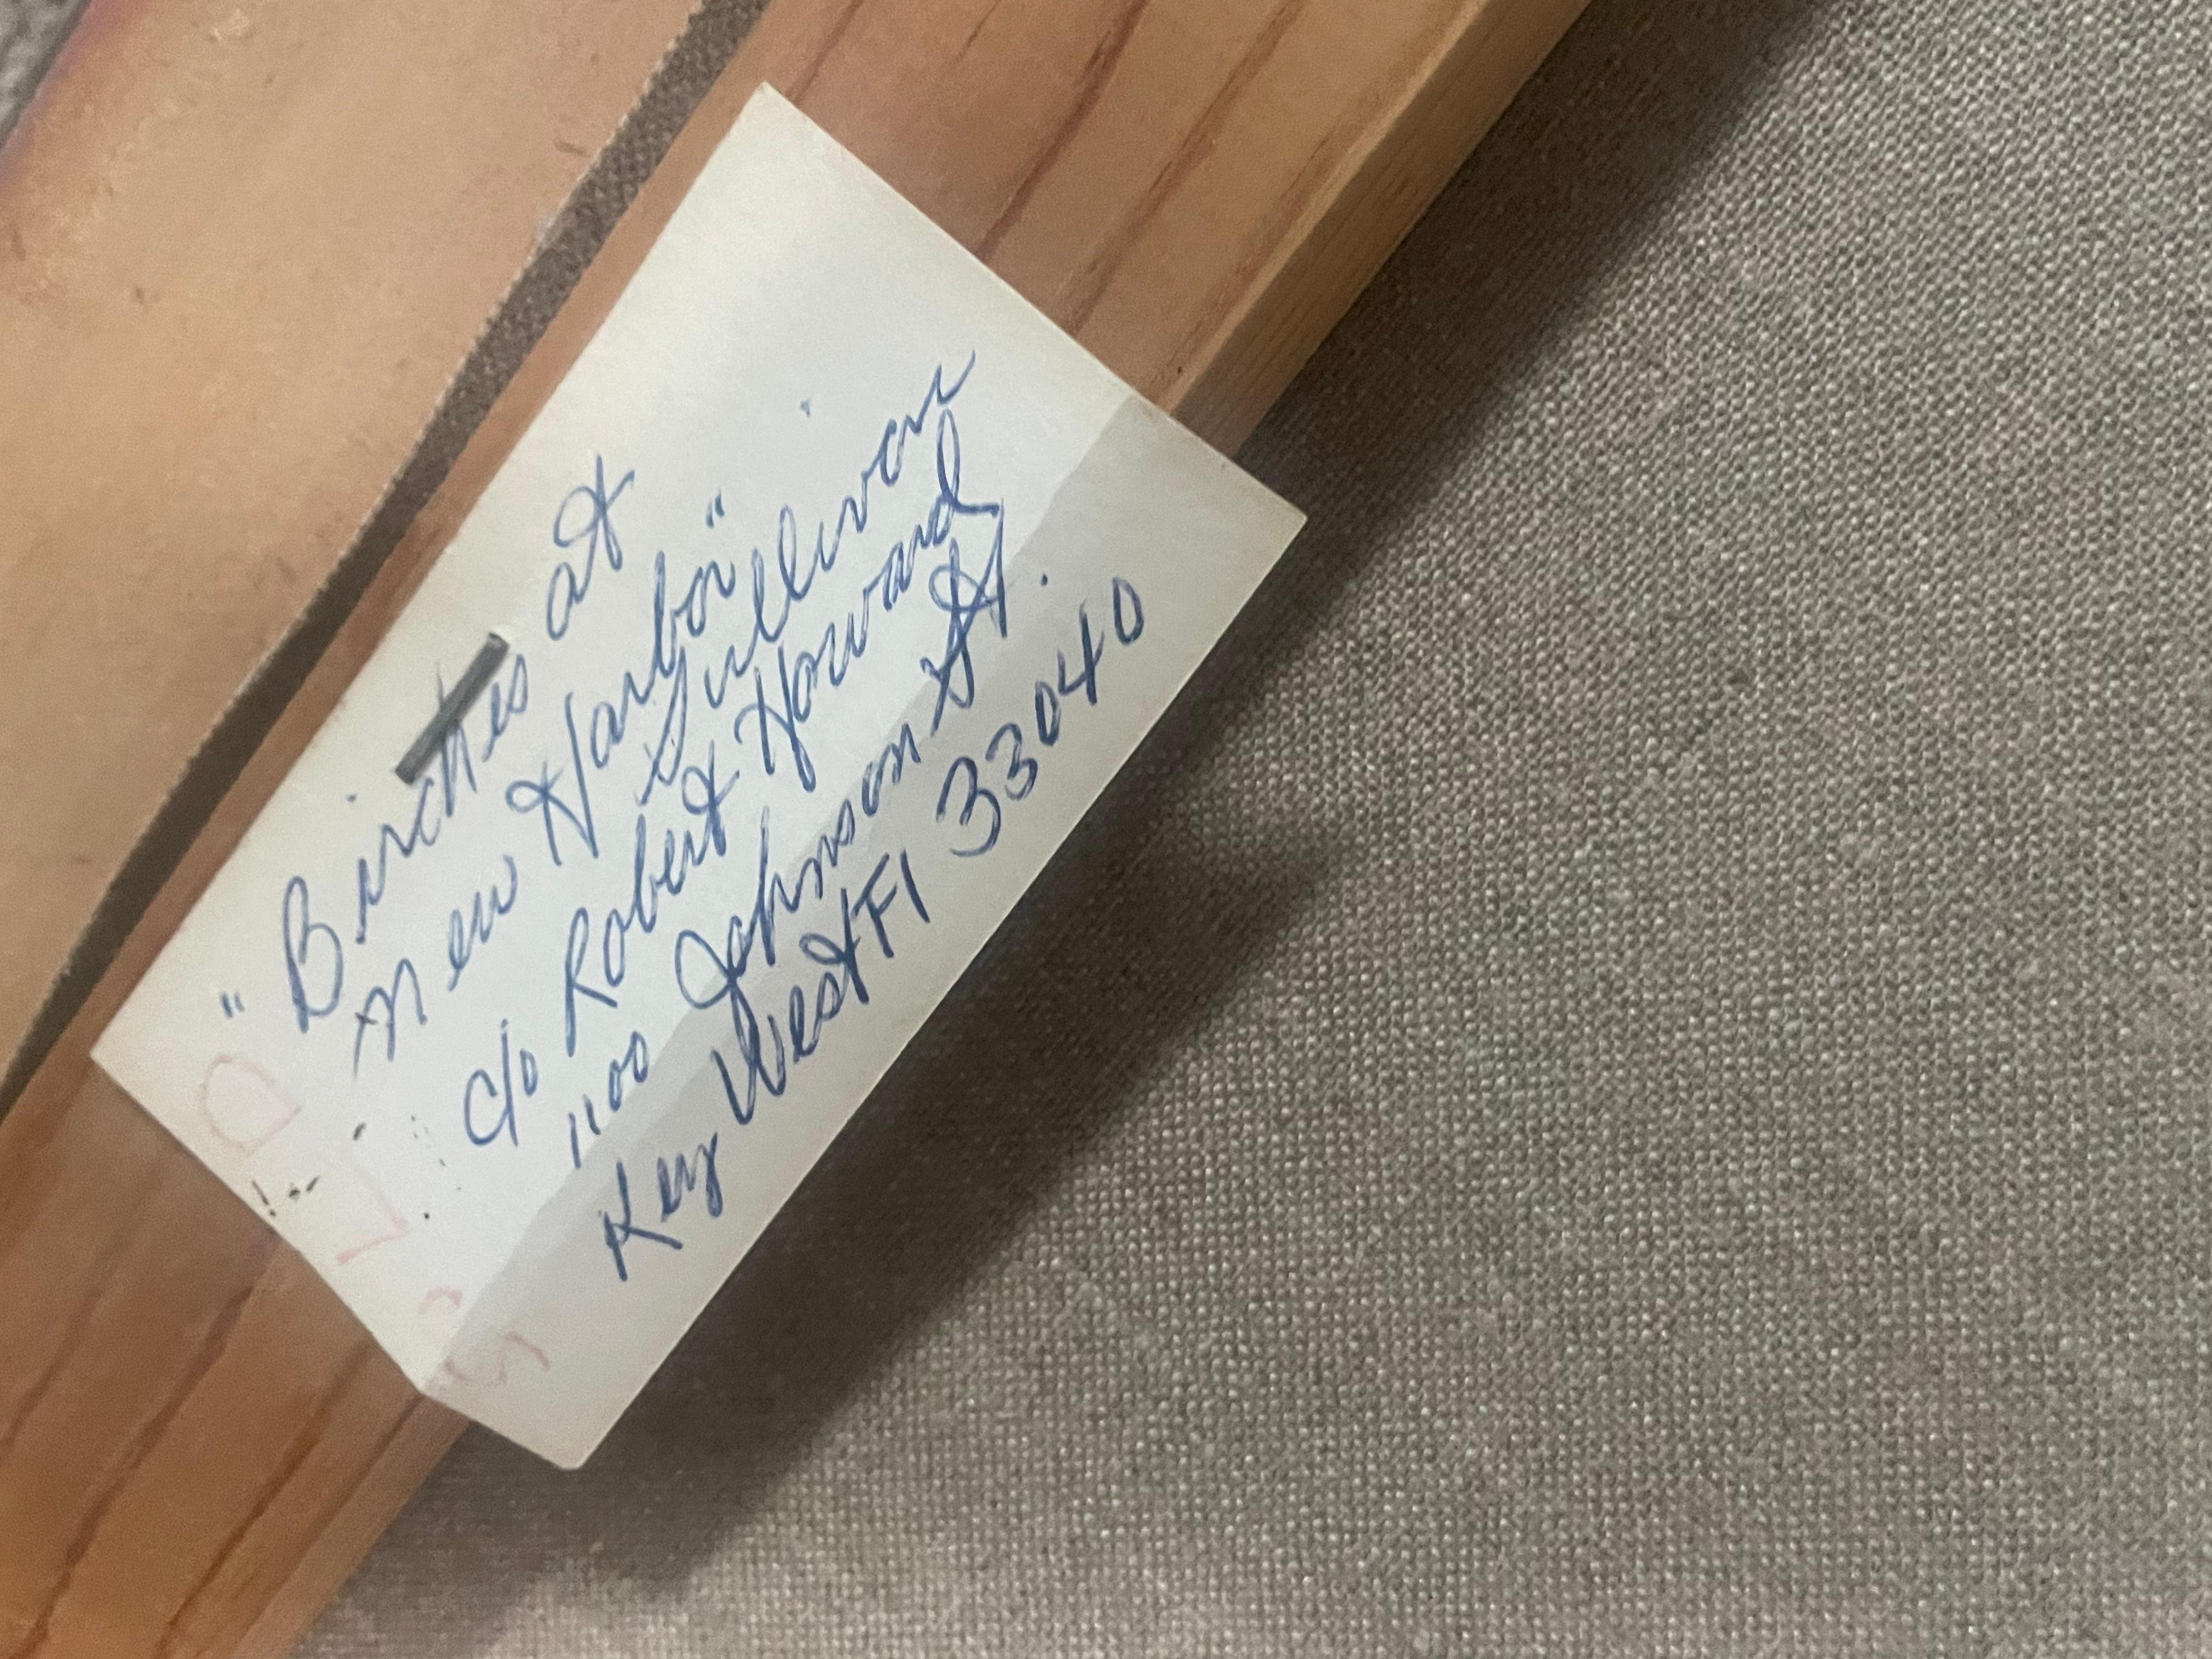 "Birches at
New Harbor"
Sullivan
c/o Robert Howard
1100 Johnson St.
Key West Fl 33040